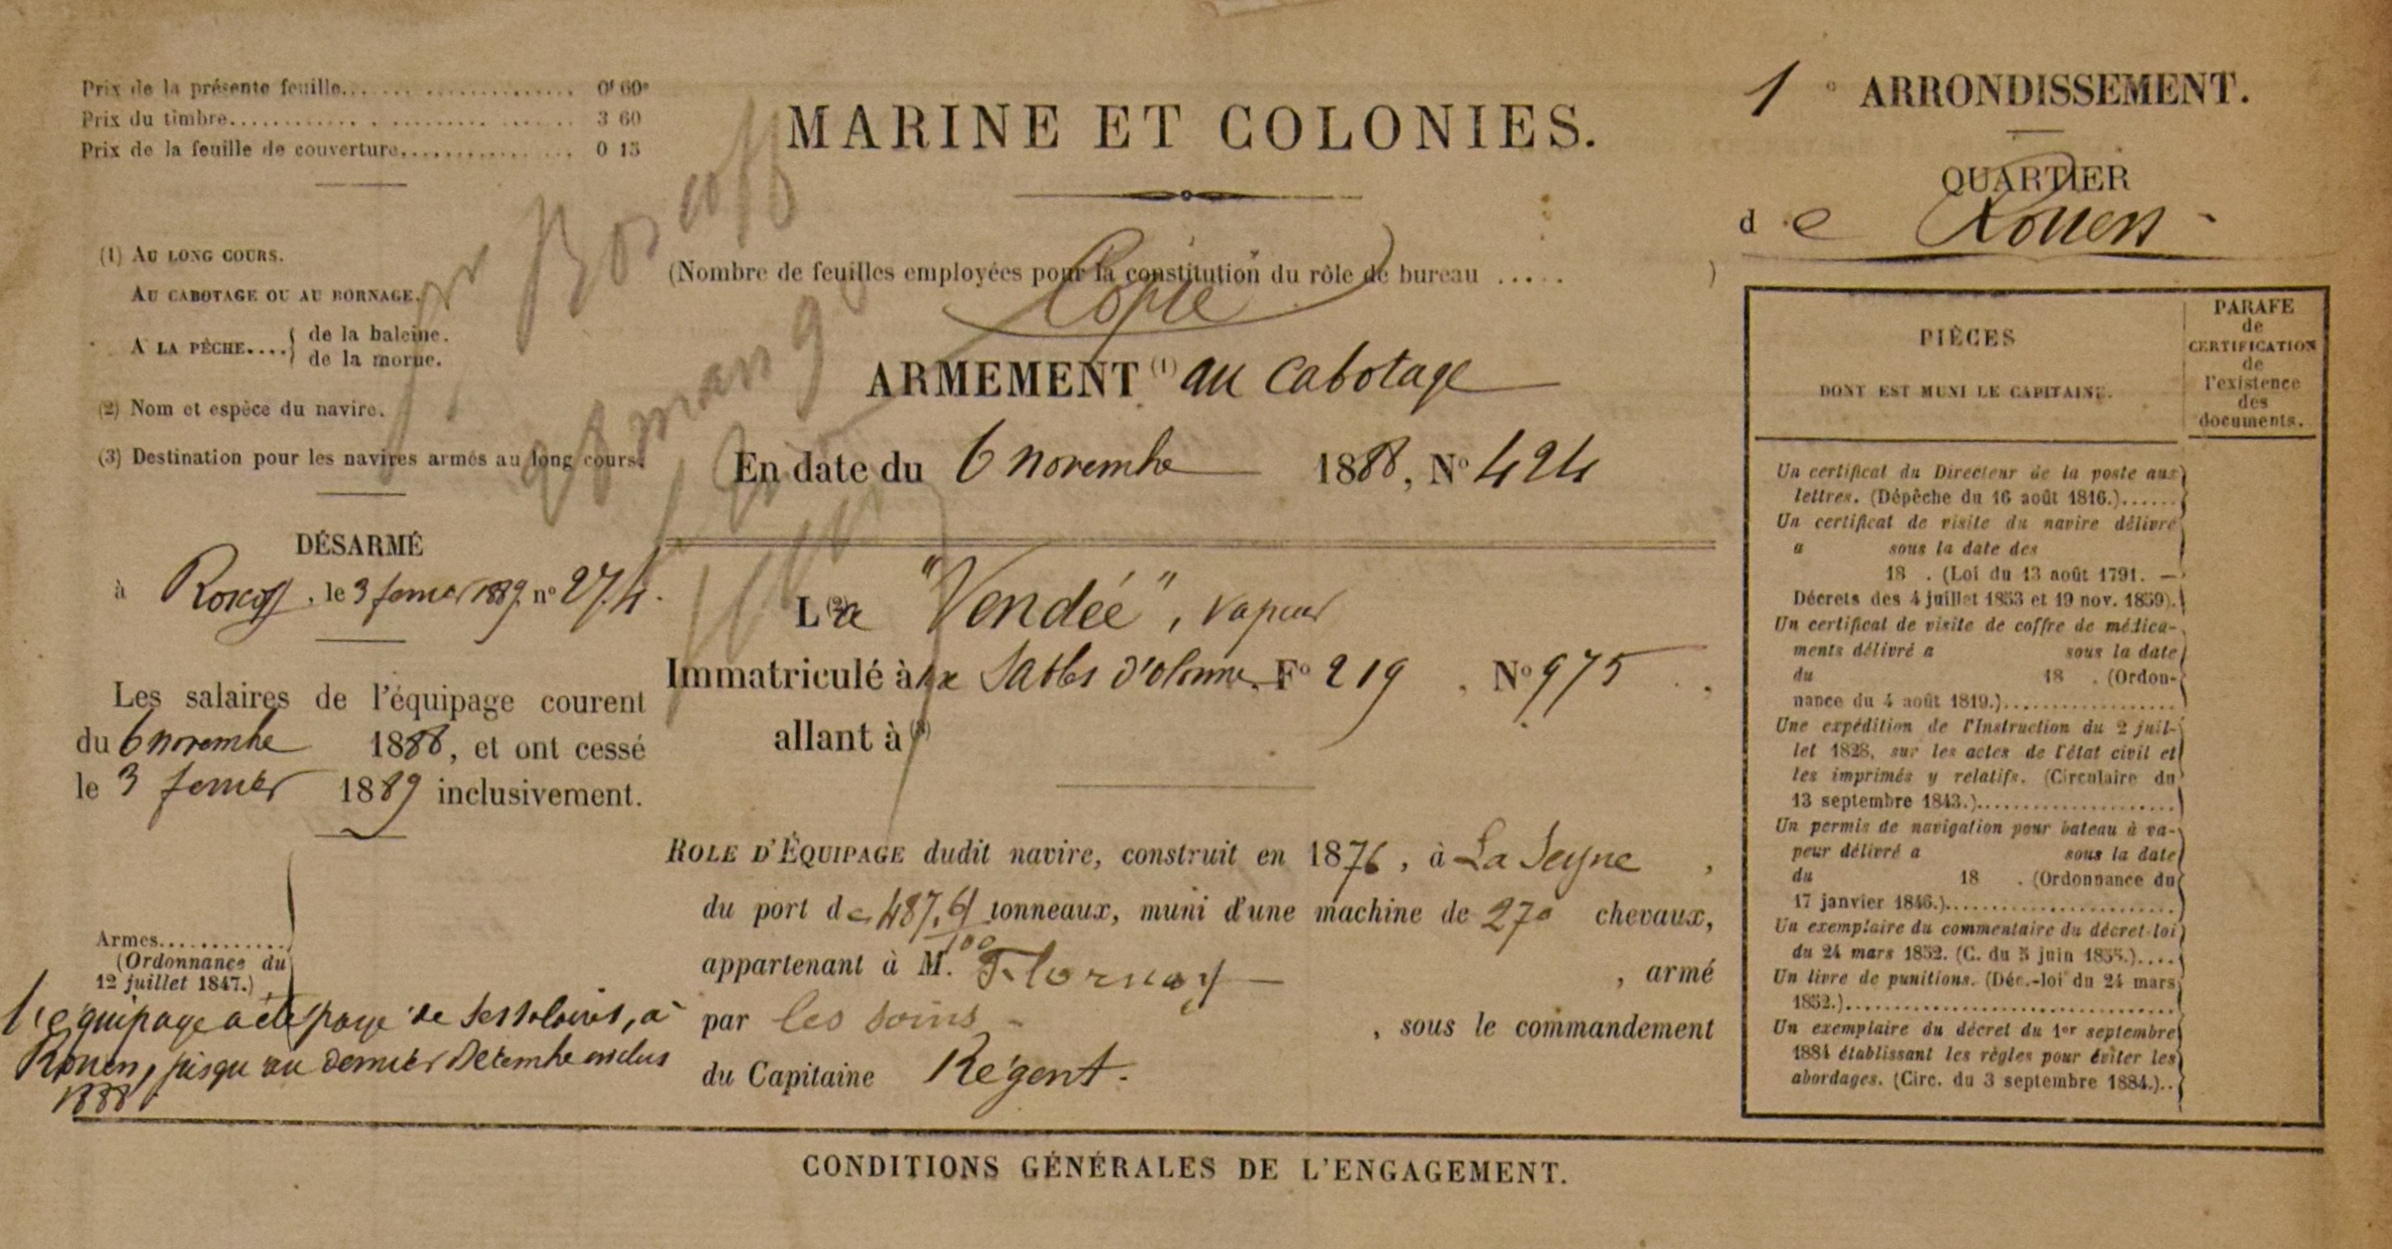 Prix de la présente feuille........................ 0f 60c
Prix du timbre........................ 3 60
Prix de la feuille de couverture................ 0 15
(1) AU LONG COURS.
AU CABOTAGE OU AU BORNAGE.
A LA PÊCHE.... { de la baleine.
de la morue.
(2) Nom et espèce du navire.
(3) Destination pour les navires armés au long cours.
DÉSARMÉ
à Roscoff, le 3 fevrier 1889 n° 274.
Les salaires de l'équipage courent
du 6 novembre 1888, et ont cessé
le 3 fevrier 1889 inclusivement.
Armes............
(Ordonnance du
12 juillet 1847.)
l'équipage a été payé de ses salaires, à
Rouen, jusqu'au dernier Décembre inclus
1888
Roscoff
MARINE ET COLONIES.
(Nombre de feuilles employées pour la constitution du rôle de bureau ..... )
Copie
ARMEMENT (1) au cabotage
En date du 6 novembre 1888, N° 424
L(2)a "Vendée", vapeur
Immatriculé à aux Sables d'olonne F° 219 . N° 975
allant à (3)
ROLE D'ÉQUIPAGE dudit navire, construit en 1876, à La Seyne,
du port de 487,61/100 tonneaux, muni d'une machine de 270 chevaux,
appartenant à M. Flornoy, armé
par les soins, sous le commandement
du Capitaine Régent.
1e ARRONDISSEMENT.
QUARTIER
de Rouen
PIÈCES
DONT EST MUNI LE CAPITAINE.
PARAFE
de
CERTIFICATION
de
l'existence
des
documents.
Un certificat du Directeur de la poste aux
lettres. (Dépêche du 16 août 1816.)......
Un certificat de visite du navire délivré
a sous la date des
18 . (Loi du 13 août 1791. —
Décrets des 4 juillet 1853 et 19 nov. 1859).
Un certificat de visite de coffre de médica-
ments délivré a sous la date
du 18 . (Ordon-
nance du 4 août 1819.)..................
Une expédition de l'Instruction du 2 juil-
let 1828, sur les actes de l'état civil et
les imprimés y relatifs. (Circulaire du
13 septembre 1843.).....................
Un permis de navigation pour bateau à va-
peur délivré a sous la date
du 18 . (Ordonnance du
17 janvier 1846.)........................
Un exemplaire du commentaire du décret-loi
du 24 mars 1852. (C. du 5 juin 1855.)....
Un livre de punitions. (Déc.-loi du 24 mars
1852.)..................................
Un exemplaire du décret du 1er septembre
1884 établissant les règles pour éviter les
abordages. (Circ. du 3 septembre 1884.)..
CONDITIONS GÉNÉRALES DE L'ENGAGEMENT.